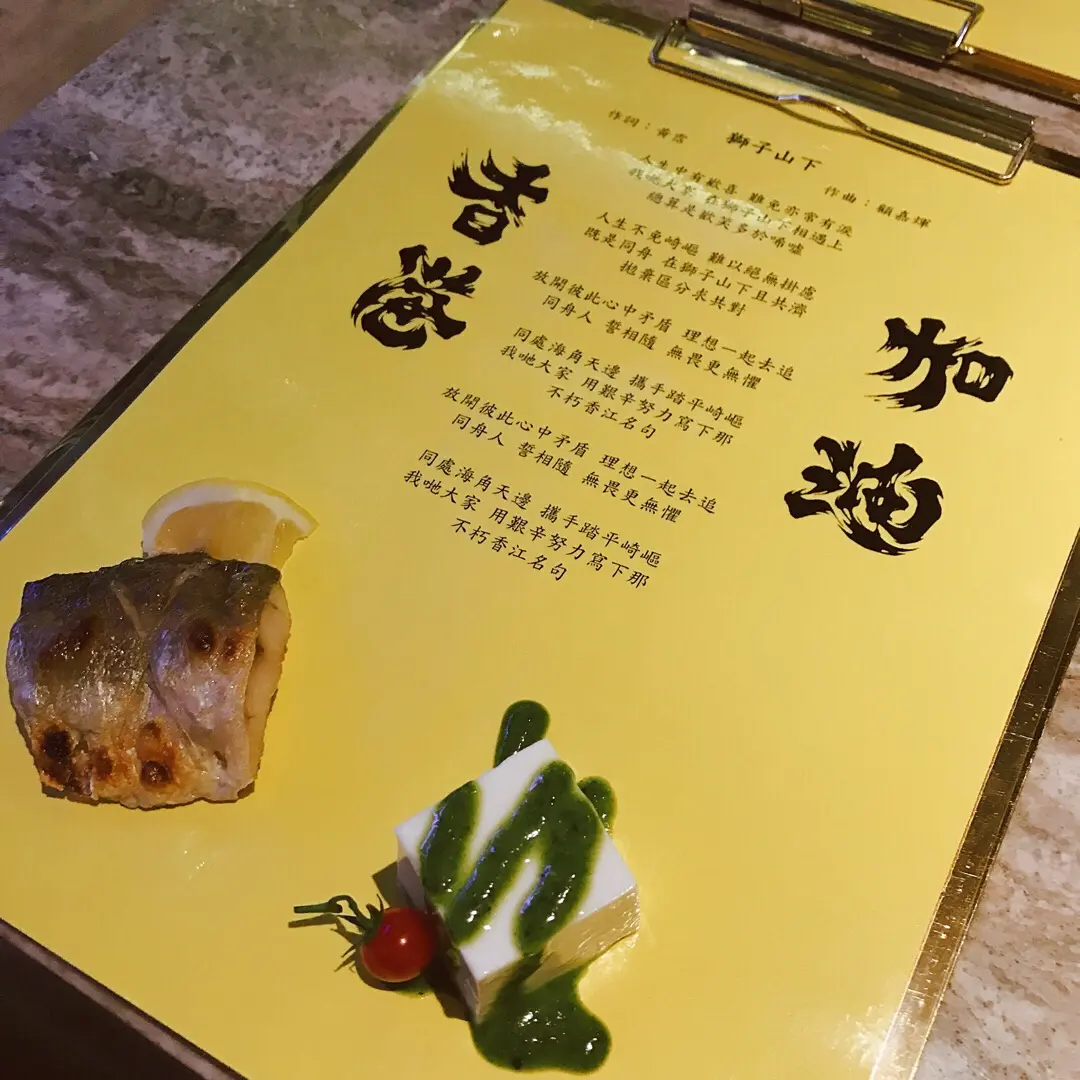 獅子山下
作詞：黃霑
作曲：顧嘉輝
人生中有歡喜 難免亦常有淚
我哋大家 在獅子山下相遇上
總算是歡笑多於唏噓
人生不免崎嶇 難以絕無掛慮
既是同舟 在獅子山下且共濟
拋棄區分求共對
放開彼此心中矛盾 理想一起去追
同舟人 誓相隨 無畏更無懼
同處海角天邊 攜手踏平崎嶇
我哋大家 用艱辛努力寫下那
不朽香江名句
放開彼此心中矛盾 理想一起去追
同舟人 誓相隨 無畏更無懼
同處海角天邊 攜手踏平崎嶇
我哋大家 用艱辛努力寫下那
不朽香江名句
香港
香港